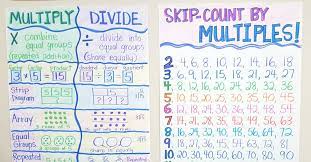 MULTIPLY
Combine
equal groups
(repeated addition)
3 x 5 = 15
Strip
Diagram
Array
Equal
Groups
Repeated
DIVIDE
÷ divide into
equal groups
(share equally)
SKIP-COUNT BY
MULTIPLES!
2 4, 6, 8, 10, 12, 14, 16, 18
3 6, 9, 12, 15, 18, 21, 24, 27
4 8, 12, 16, 20, 24, 28, 32, 36
5 10, 15, 20, 25, 30, 35, 40, 45
6 12, 18, 24, 30, 36, 42, 48, 54
7 14, 21, 28, 35, 42, 49, 56, 63
8 16, 24, 32, 40, 48, 56, 64, 72
9 18, 27, 36, 45, 54, 63, 72, 81
10 20, 30, 40, 50, 60, 70, 80, 90